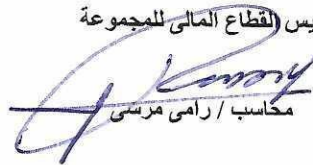 يس القطاع المالى للمجموعة
محاسب / رامى مرسى